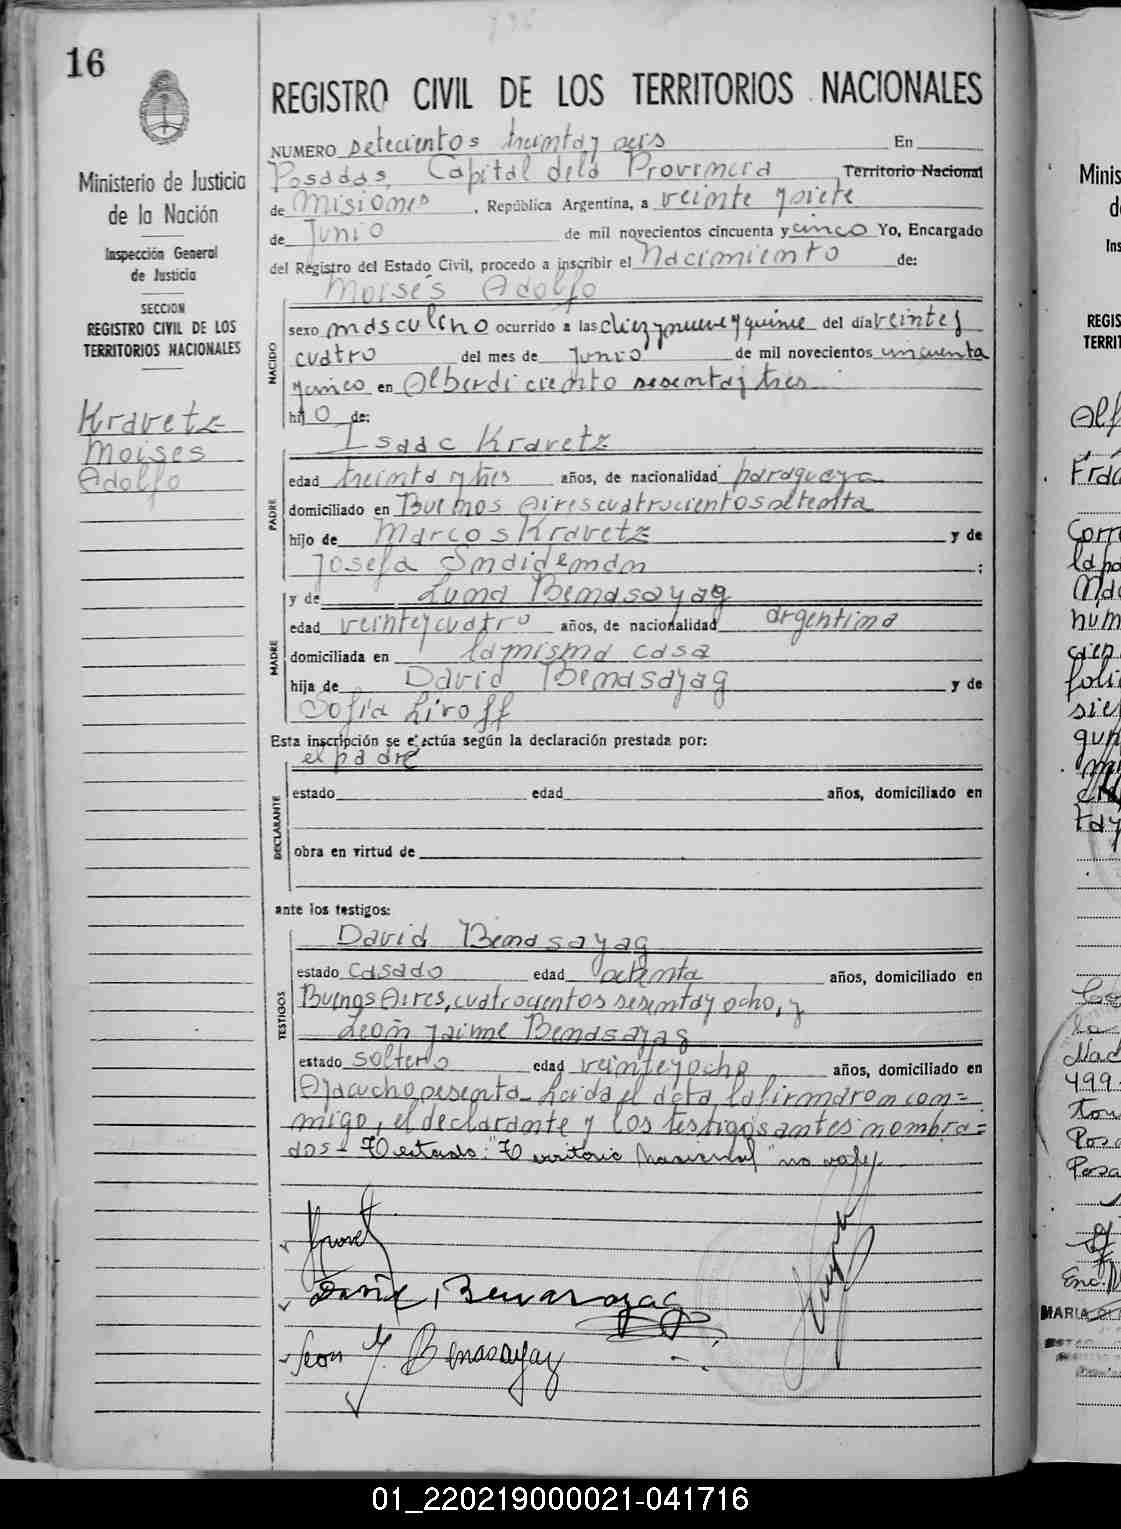 16
Ministerio de Justicia
de la Nación
Inspección General
de Justicia
SECCION
REGISTRO CIVIL DE LOS
TERRITORIOS NACIONALES
Kravetz
Moises
Adolfo
REGISTRO CIVIL DE LOS TERRITORIOS NACIONALES
NUMERO setecientos treinta y seis En
Posadas, Capital dela Provincia Territorio Nacional
de Misiones, República Argentina, a veinte y siete
de Junio de mil novecientos cincuenta y cinco Yo, Encargado
del Registro del Estado Civil, procedo a inscribir el Nacimiento de:
Moisés Adolfo
NACIDO
sexo masculino ocurrido a las diez y nueve y quince del día veinte y
cuatro del mes de Junio de mil novecientos cincuenta
y cinco en Alberdi ciento sesenta y tres
hijo de:
Isaac Kravetz
PADRE
edad treinta y tres años, de nacionalidad paraguaya
domiciliado en Buenos Aires cuatrocientos setenta
hijo de Marcos Kravetz y de
Josefa :
MADRE
y de Luna Benasayag
edad veinte y cuatro años, de nacionalidad argentina
domiciliada en la misma casa
hija de David Benasayag y de
Sofia Liroff
Esta inscripción se efectúa según la declaración prestada por:
el padre
DECLARANTE
estado edad años, domiciliado en
obra en virtud de
ante los testigos:
David Benasayag
TESTIGOS
estado casado edad años, domiciliado en
Buenos Aires, cuatrocientos sesenta y ocho, y
León Jaime Benasayag
estado soltero edad veinte y ocho años, domiciliado en
Ayacucho sesenta_ Leida el acta la firmaron con=
migo, el declarante y los testigos antes nombra=
dos = Testado: "Territorio Nacional" no vale
David, Benasayag
Leon J. Benasayag
01_220219000021-041716